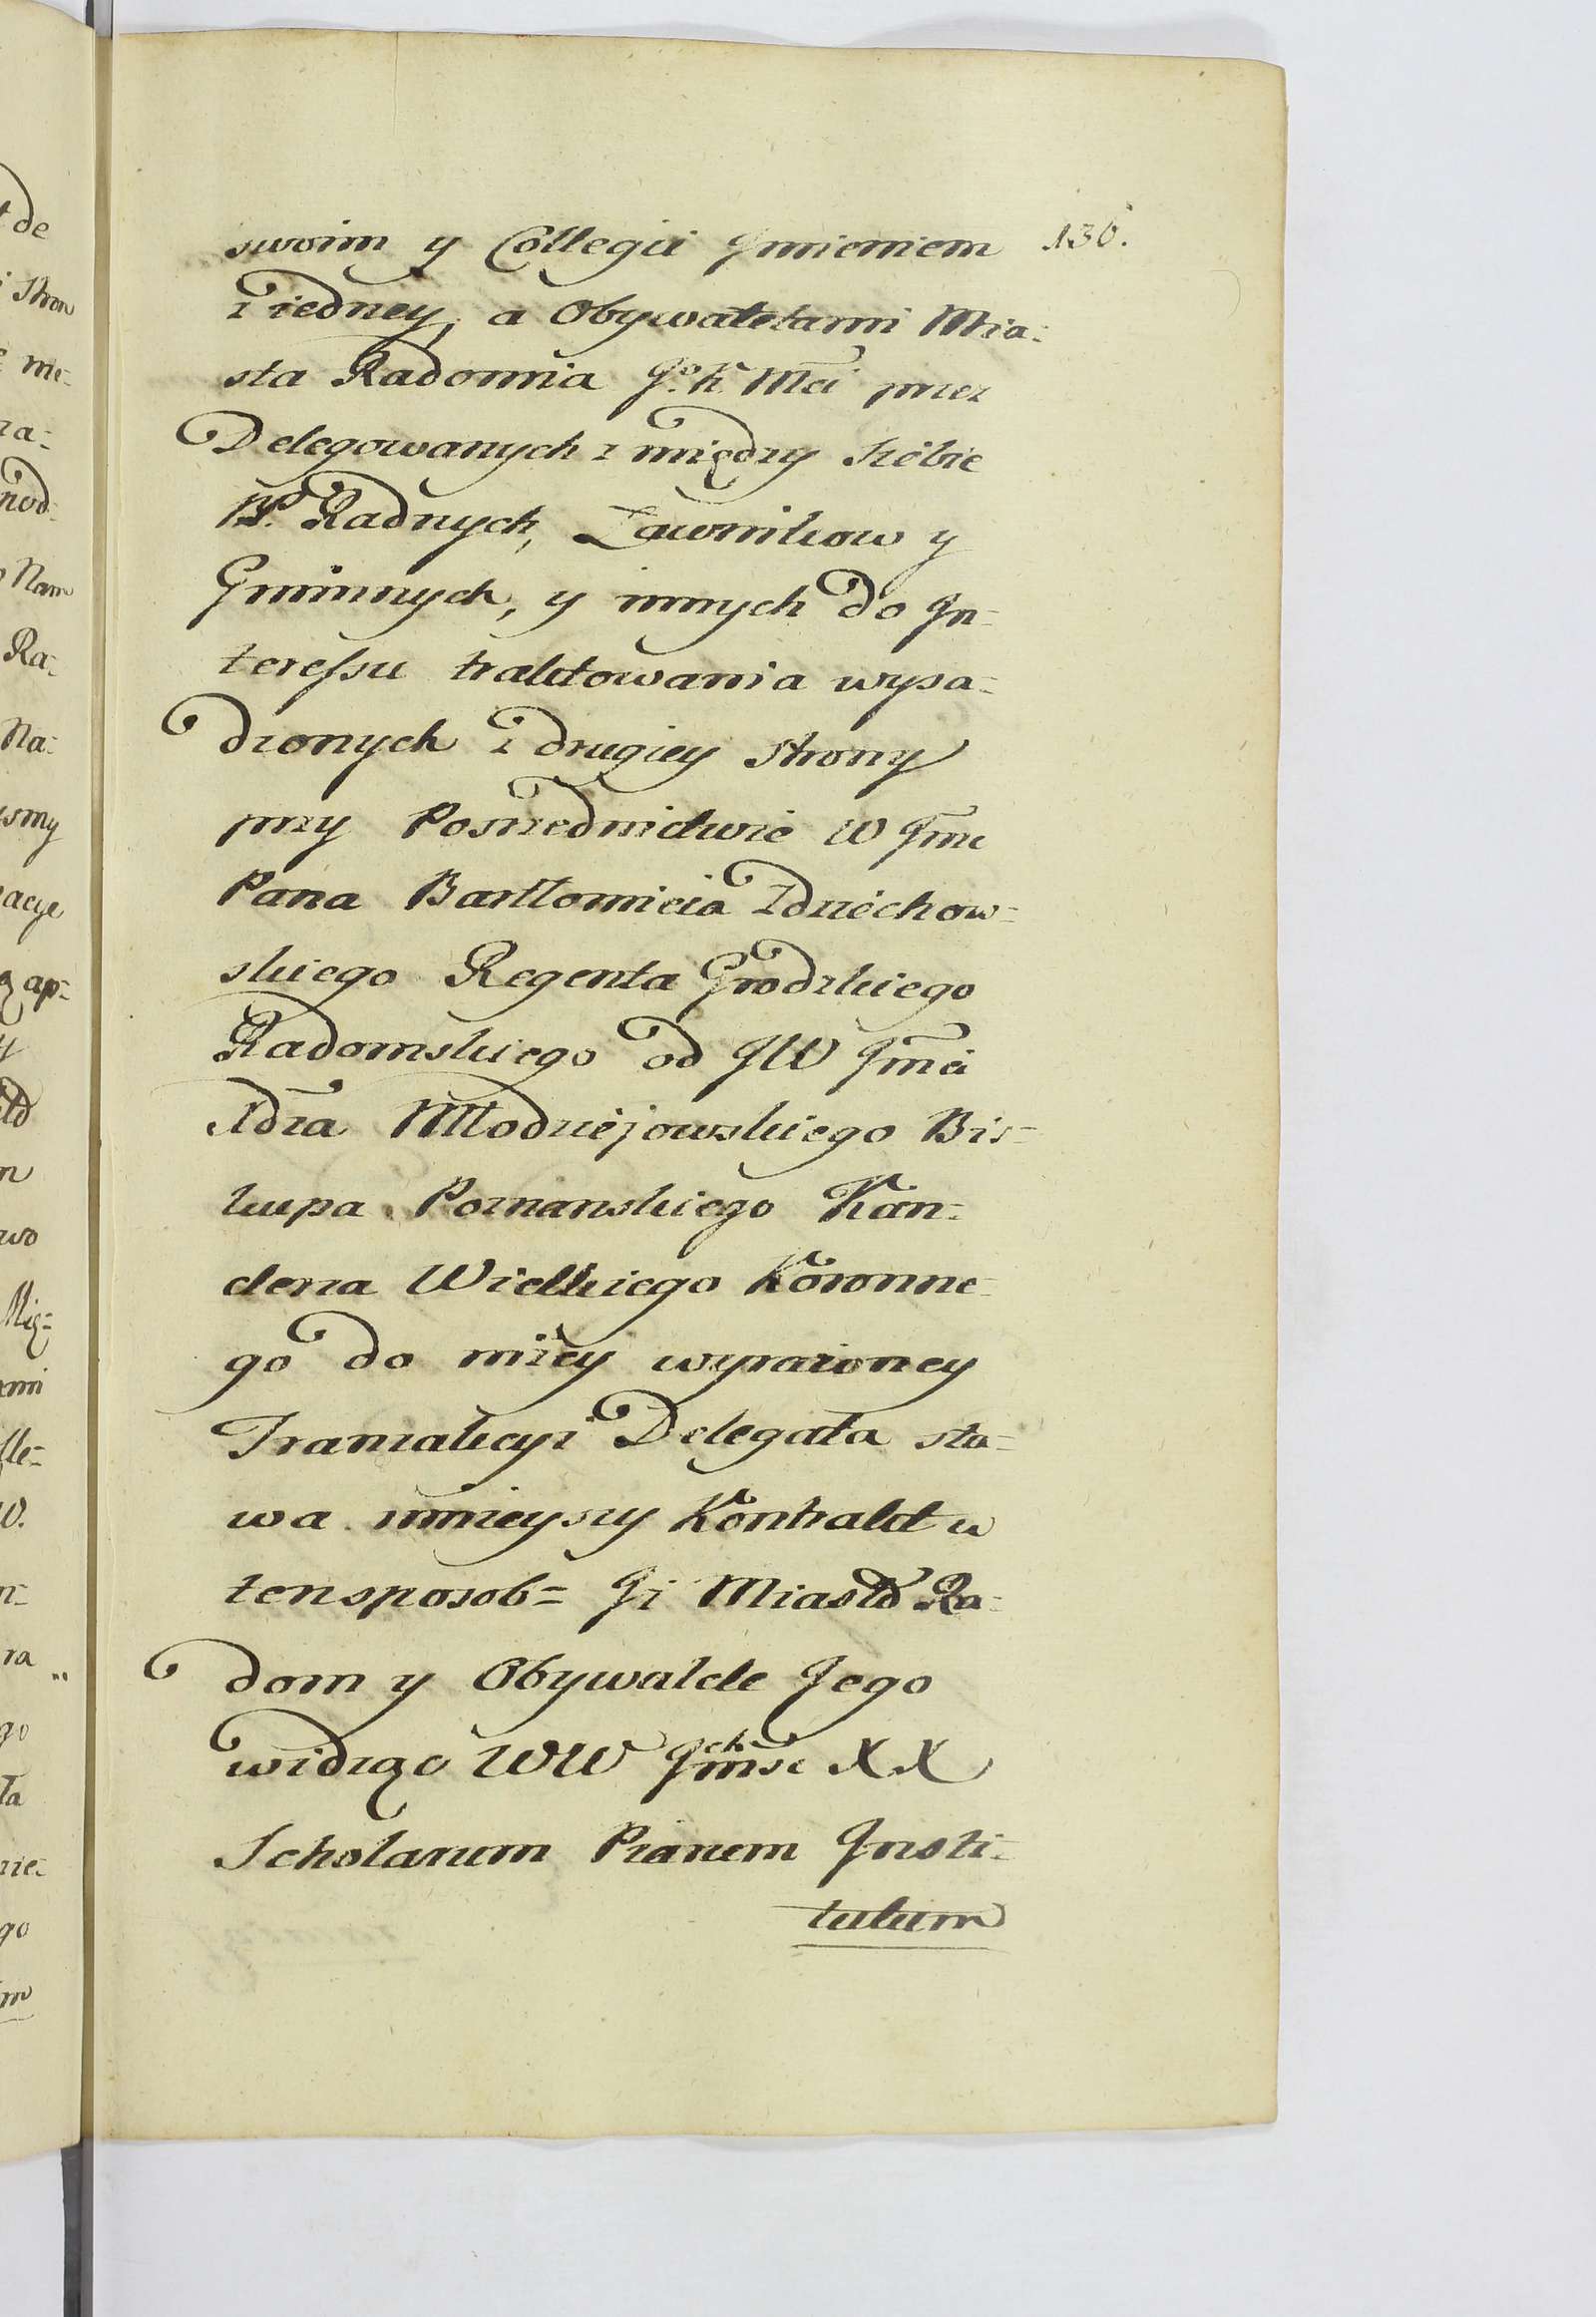 130.
swoim y Collegii Jmieniem
z iedney, a Obywatelami Mia=
sta Radomia Jo. K. Mci przez
Delegowanych z między siebie
PP. Radnych, Ławnikow y
Gminnych, y innych do Jn=
teressu traktowania wysa=
dzonych z drugiey strony
przy Posrzednictwie W Jmc
Pana Bartłomieia Zdziechow=
skiego Regenta Grodzkiego
Radomskiego od JW Jmci
Xdza Młodziejowskiego Bis=
kupa Poznanskiego Kan=
clerza Wielkiego Koronne=
go do niżey wyrażoney
Tranzakcyi Delegata sta=
wa ninieyszy Kontrakt w
ten sposob= Jż Miasto Ra=
dom y Obywatele Jego
widząc WW Jchmsc XX
Scholarum Piarum Insti=
tutum